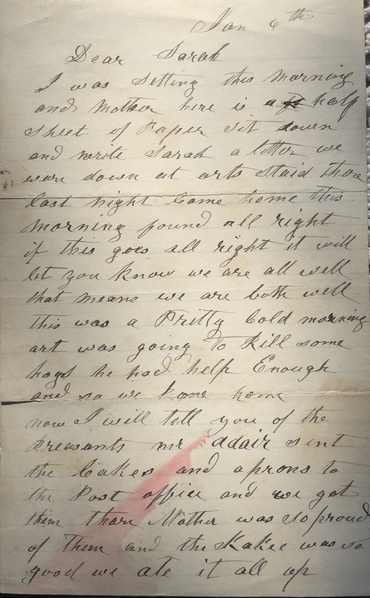 Jan 6th
Dear Sarah
I was setting this morning
and Mother here is a half
sheet of Paper sit down
and write Sarah a letter we
ware down at arts staid thare
last night Come home this
morning found all right
if this goes all right it will
let you know we are all well
that means we are both well
this was a Pritty Cold morning
art was going to kill some
hogs he had help Enough
and so we Come home
now I will tell you of the
Preasants mr adair sent
the Cakes and aprons to
the Post office and we got
them thare Mother was so proud
of them and the Kakes was so
good we ate it all up